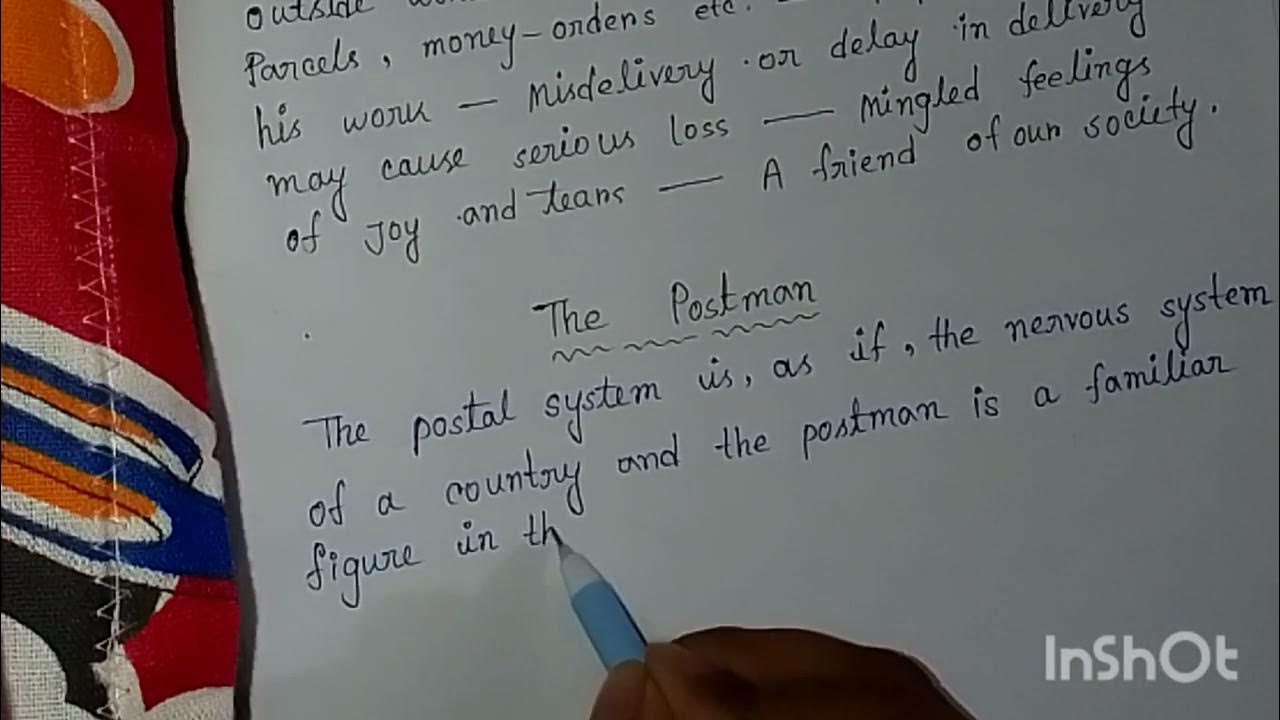 outside
Parcels, money-orders etc.
his work — Misdelivery or delay in delivery
may cause serious loss — Mingled feelings
of Joy and tears — A friend of our society.
The Postman
The postal system is, as if, the nervous system
of a country and the postman is a familiar
figure in th
InShOt